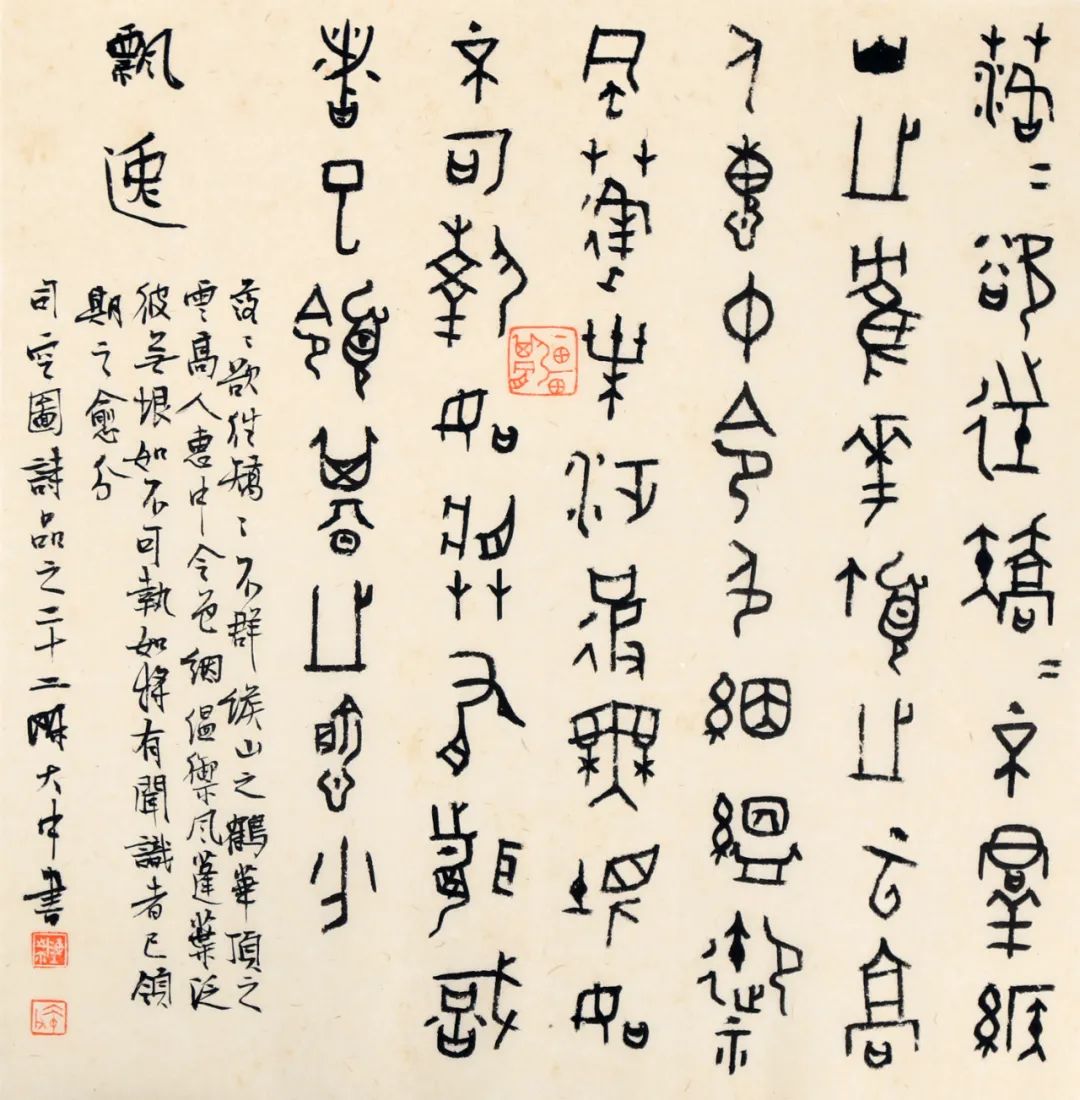 落〻欲往矯〻不群緱
山之鶴華頂之云高
人惠中令色絪縕御
風蓬葉泛彼無垠如
不可執如將有聞識
者已領期之愈分
飄逸
落〻欲往矯〻不群緱山之鶴華頂之
雲高人惠中令色絪縕禦風蓬葉泛
彼無垠如不可執如將有聞識者已領
期之愈分
司空圖詩品之二十二陳大中書